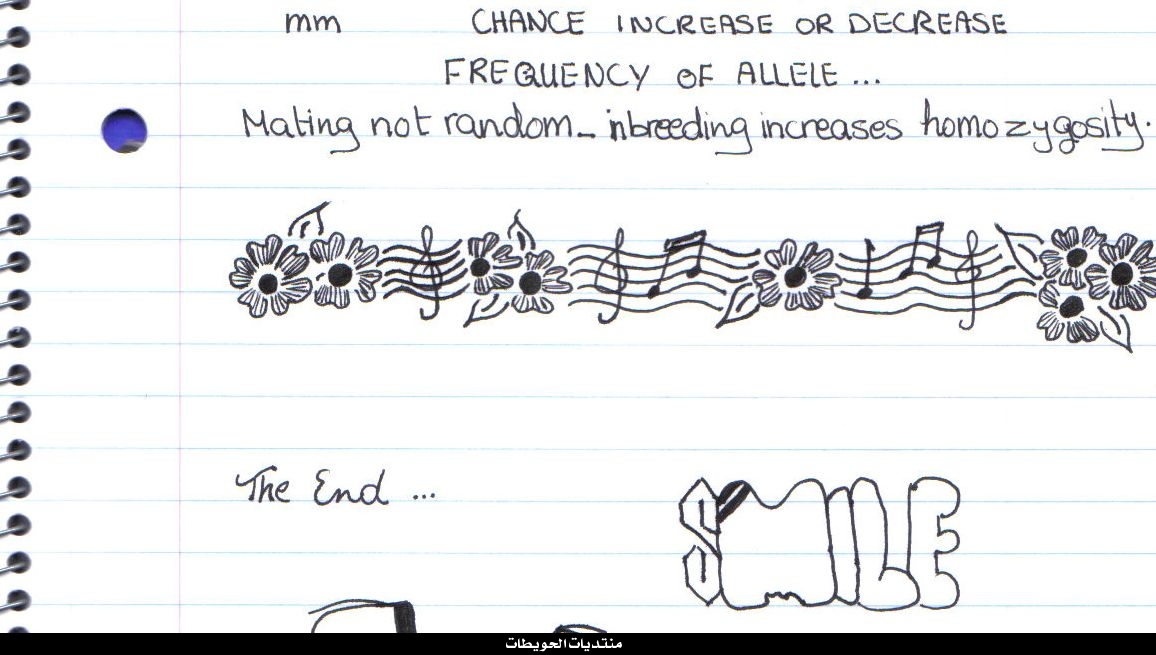 mm CHANCE INCREASE OR DECREASE
FREQUENCY OF ALLELE ...
Mating not random - inbreeding increases homozygosity.
The End ...
SMILE
منتديات الحويطات